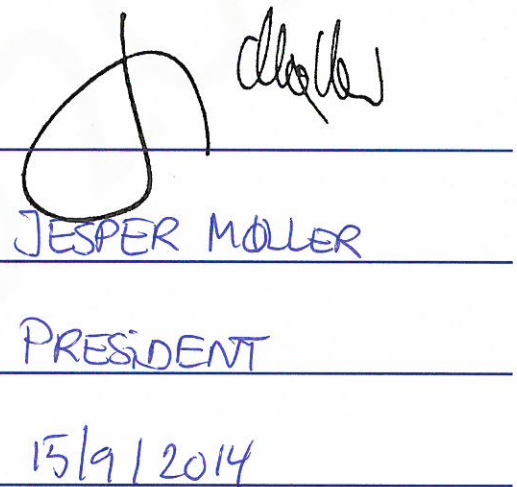 JESPER MØLLER
PRESiDENT
15/9/2014